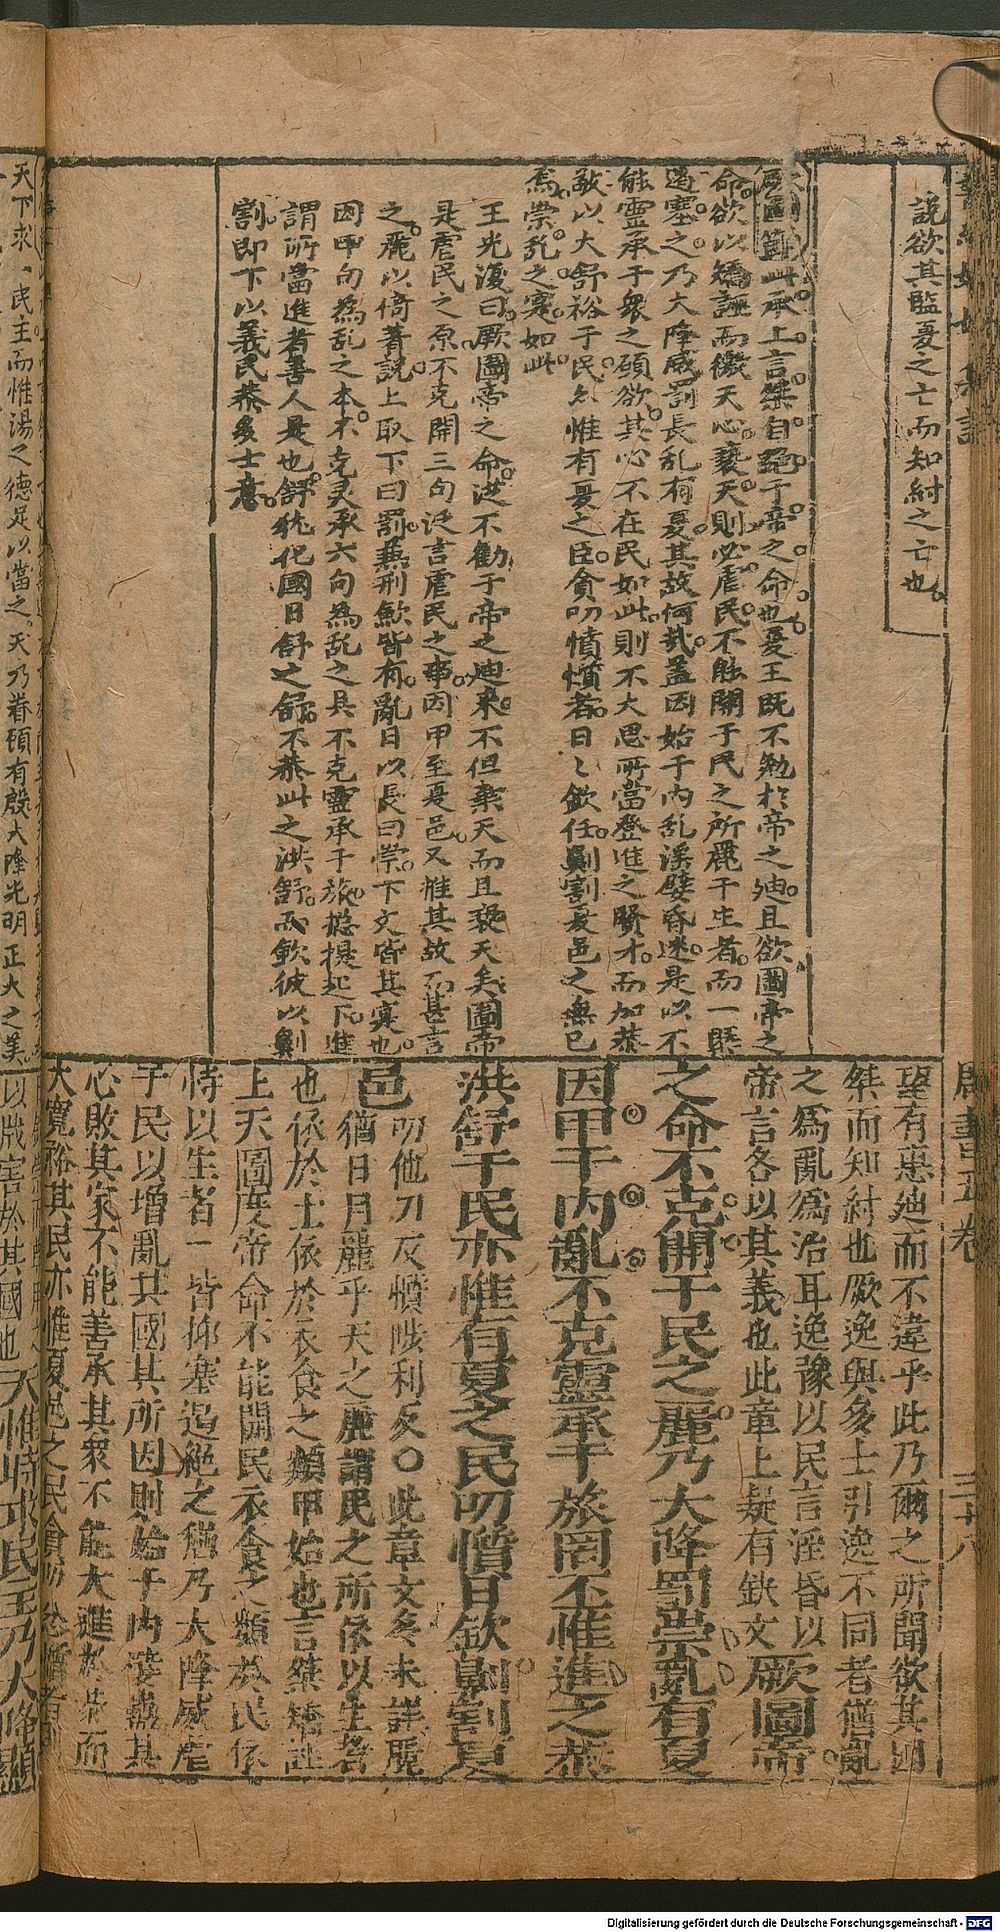 說欲其監夏之亡而知紂之亡也
厥圖節此承上言桀自絕于帝之命也夏王既不勉於帝之迪且欲圖帝之
命欲以矯誣而徼天心褻天則必虐民不能開于民之所麗于生者而一瞾
遏塞之乃大降威罰長乱有夏其故何㢤蓋因始于內乱滛嬖昏迷是以不
能靈承于衆之頋欲其心不在民如此則不大思所當登進之賢才而加恭
敬以大舒裕于民乆惟有夏之臣貪叨憤懫者日〻欽任劓割夏邑之無已
焉崇乱之寔如此
王光復曰厥圖帝之命洪不勸于帝之迪來不但棄天而且褻天矣圖帝
是虐民之原不克開三句泛言虐民之事因甲至夏邑又推其故而甚言
之麗以倚著說上取下曰罰兼刑歛皆有亂日以長曰崇下文皆其寔也
因甲句為乱之本不克灵承六句為乱之具不克靈承于旅㧾提起下進
謂所當進者善人是也舒犹怩國日舒之舒不恭此之洪舒而欽彼以劓
割即下以義民恭多士意
周書五卷
三十八
聖有惠迪而不違乎此乃爾之所聞欲其因
桀而知紂也厥逸與多士引逸不同者猶亂
之爲亂爲治耳逸豫以民言淫昏以
帝言各以其義也此章上疑有缺文厥圖帝
之命不克開于民之麗乃大降罰崇亂有夏
因甲于內亂不克靈承于旅罔丕惟進之恭
洪舒于民亦惟有夏之民叨懫日欽劓割夏
邑叨他刀反懫陟利反〇此章文多未詳麗
猶日月麗乎天之麗謂民之所依以生者
也依於土依於衣食之類甲始也言桀矯誣
上天圖度帝命不能開民衣食之類於民依
恃以生者一皆抑塞遏絕之猶乃大降威虐
于民以增亂其國其所因則始于內嬖蠱其
心敗其家不能善承其衆不能大進於恭而
大寬裕其民亦惟夏邑之民貪叨忿懫者
天下求民主而惟湯之德足以當之天乃眷頋有殷大降光明正大之美
以戕害於其國也天惟時求民主乃大降顯
Digitalisierung gefördert durch die Deutsche Forschungsgemeinschaft - DFG